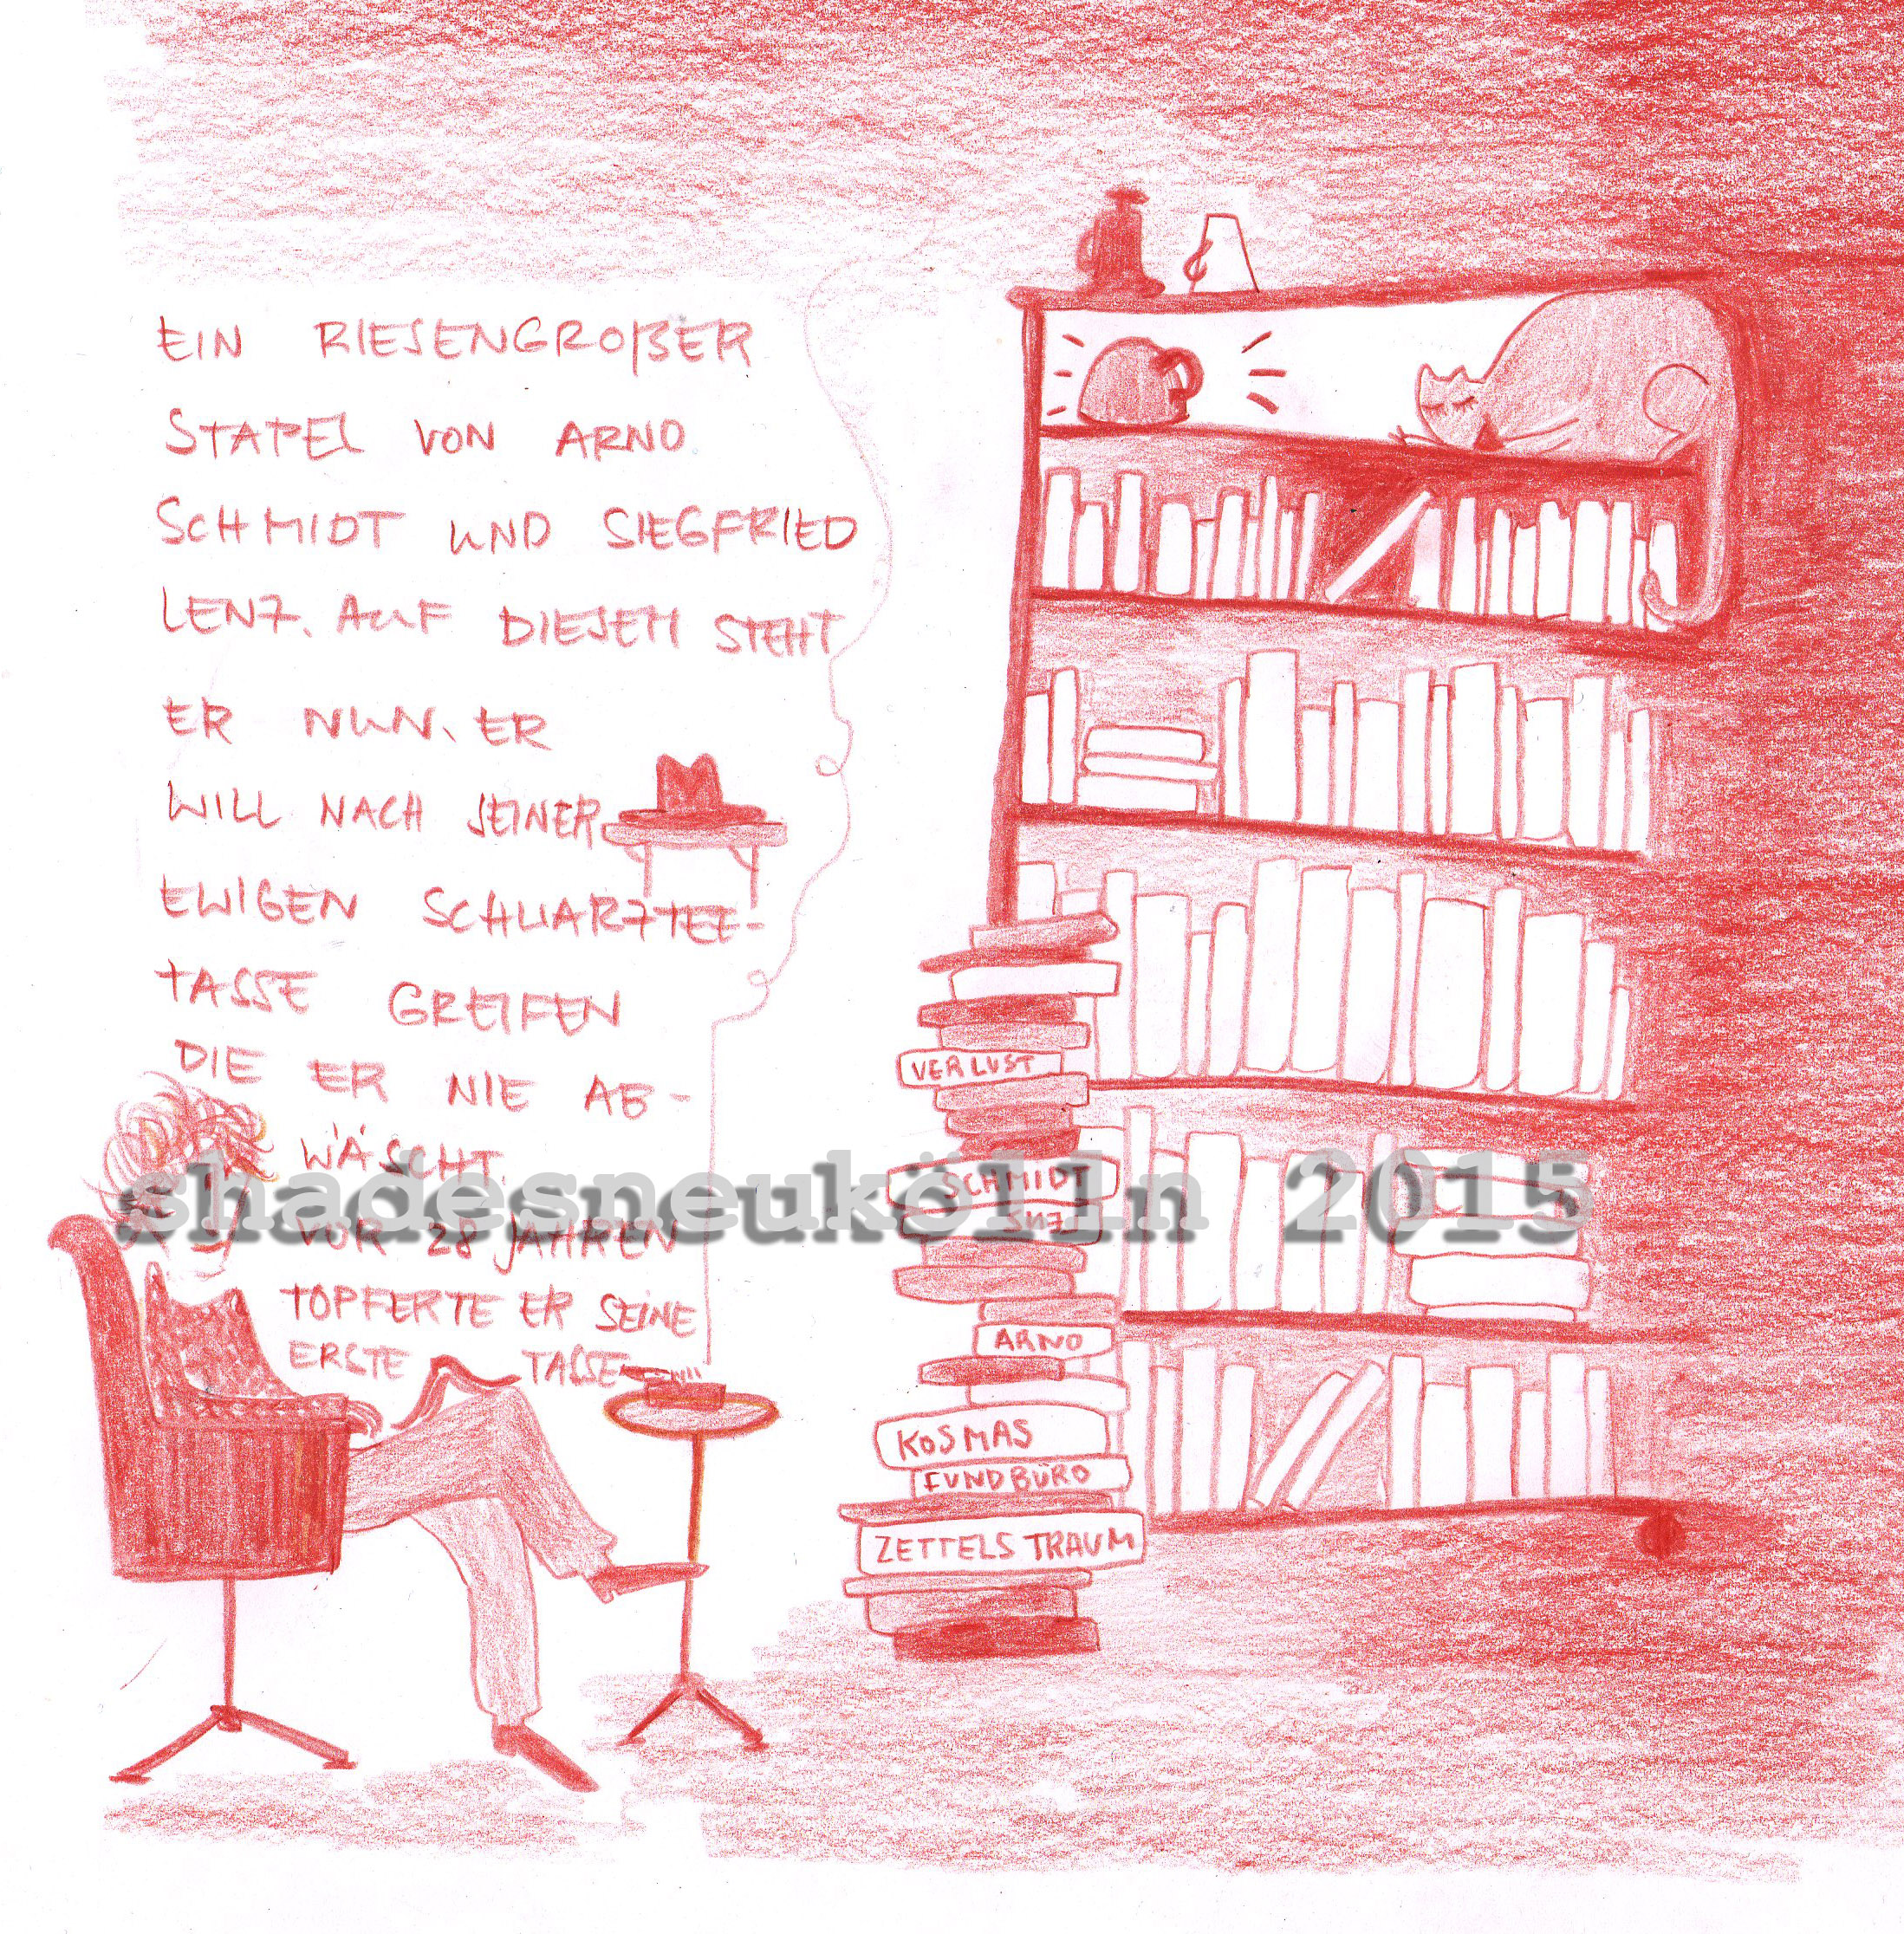 EIN RIESENGROßER
STAPEL VON ARNO
SCHMIDT UND SIEGFRIED
LENZ. AUF DIESEM STEHT
ER NUN. ER
WILL NACH SEINER
EWIGEN SCHWARZTEE-
TASSE GREIFEN
DIE ER NIE AB-
WÄSCHT.
VOR 28 JAHREN
TÖPFERTE ER SEINE
ERSTE TASSE
VERLUST
SCHMIDT
ARNO
KOSMAS
FUNDBÜRO
ZETTELS TRAUM
shadesneukölln 2015